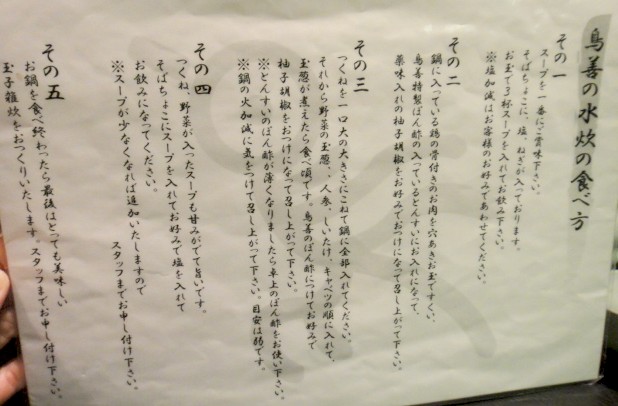 鳥善の水炊の食べ方
その一
スープを一番にご賞味下さい。
そばちょこに、塩、ねぎが入っております。
お玉で3杯スープを入れてお飲み下さい。
※塩加減はお客様のお好みであわせてください。
その二
鍋に入っている鶏の骨付きのお肉を穴あきお玉ですくい、
鳥善特製ぽん酢の入っているとんすいにお入れになって、
薬味入れの柚子胡椒をお好みでおつけになって召し上がって下さい。
その三
つくねを一口大の大きさにこねて鍋に全部入れてください。
それから野菜の玉葱、、人参、しいたけ、キャベツの順に入れて、
玉葱が煮えたら食べ頃です。鳥善のぽん酢につけてお好みで
柚子胡椒をおつけになって召し上がって下さい。
※とんすいのぽん酢が薄くなりましたら卓上のぽん酢をお使い下さい。
※鍋の火加減に気をつけて召し上がって下さい。目安は弱です。
その四
つくね、野菜が入ったスープも甘みがでて旨いです。
そばちょこにスープを入れてお好みで塩を入れて
お飲みになってください。
※スープが少なくなれば追加いたしますので
スタッフまでお申し付け下さい。
その五
お鍋を食べ終わったら最後はとっても美味しい
玉子雑炊をおつくりいたします。スタッフまでお申し付け下さい。